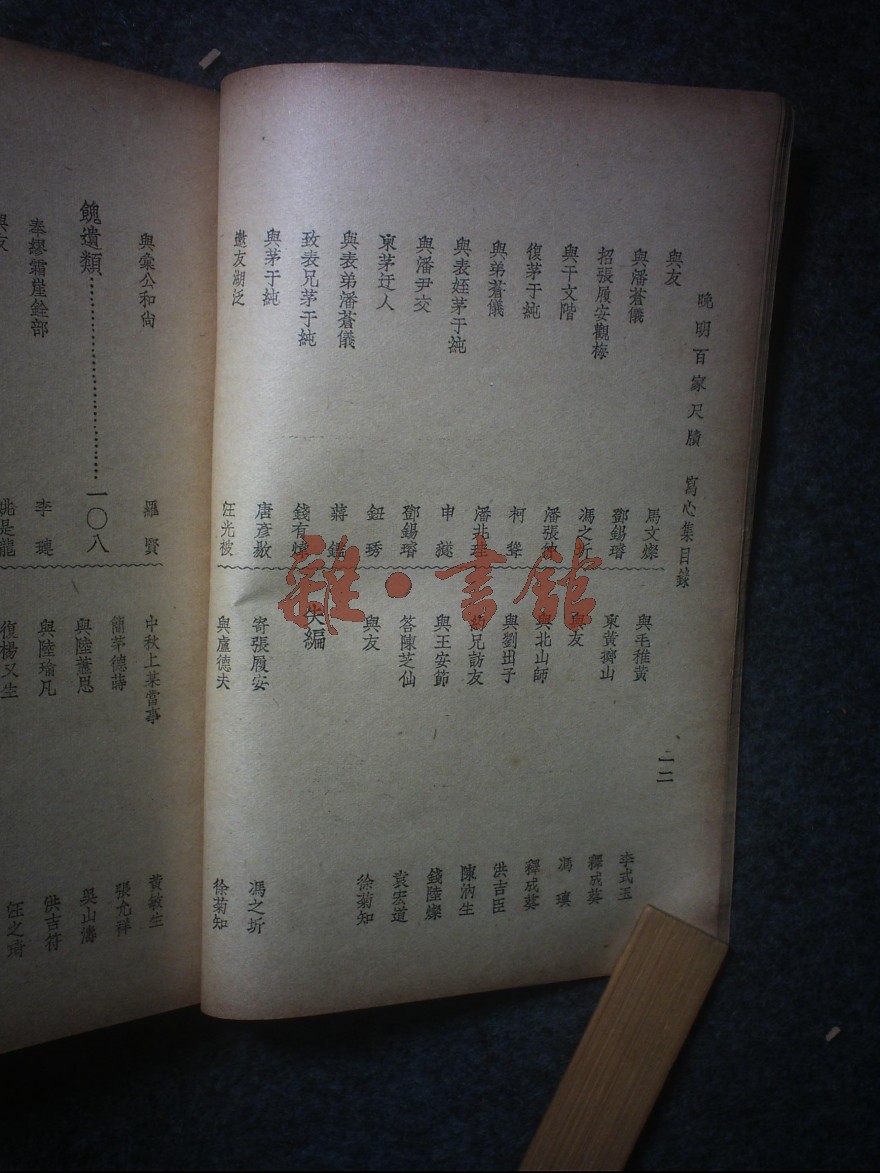 晚明百家尺牘 寫心集目錄
二二
與友 馬文燦
與潘蒼儀 鄧錫璿
招張履安觀梅 馮之圻
與干文階 潘張
復茅于純 柯聳
與弟蒼儀 潘兆
與表姪茅于純 申
與潘尹交 鄧錫璿
柬茅迂人 鈕琇
與表弟潘蒼儀 蔣鑨
致表兄茅于純 錢有
與茅于純 唐彥
邀友湖泛 汪光被
與毛稚黃 李式玉
柬黃擲山 釋成英
與友 馮瑛
與北山師 釋成英
與劉出子 洪吉臣
兄訪友 陳汭生
與王安節 錢陸燦
答陳芝仙 袁宏道
與友 徐菊知
失編
寄張履安 馮之圻
與盧德夫 徐菊知
與彙公和尚 羅賢
餽遺類 一〇八
奉繆霜崖銓部 李璉
與友 姚是龍
中秋上葉當事 黃敏生
簡茅德蒔 張允祥
與陸藎思 吳山濤
與陸瑜凡 洪吉符
復楊又生 汪之琦
雜·書館